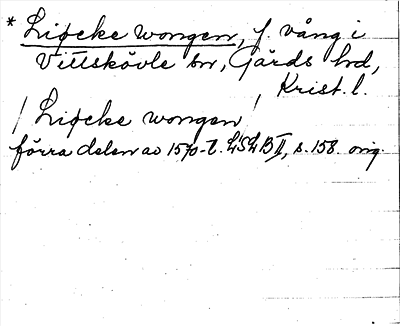 * Liøcke wongen, f. vång i
Vittskövle sn, Gärds hd,
Krist. l.
/ Liøcke wongen /
förra delen av 1570-t. LSLB II, s. 158. orig.